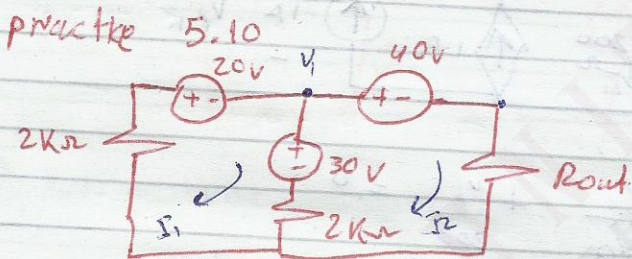 practke 5.10
20v V1 40v
+ - + -
2KΩ + - 30V Rout
I1 2KΩ I2